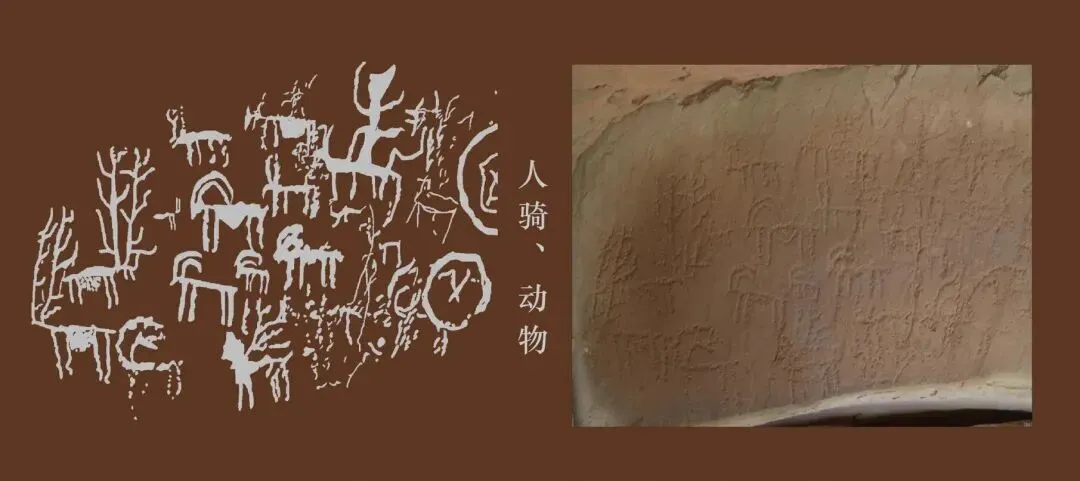 人骑、动物